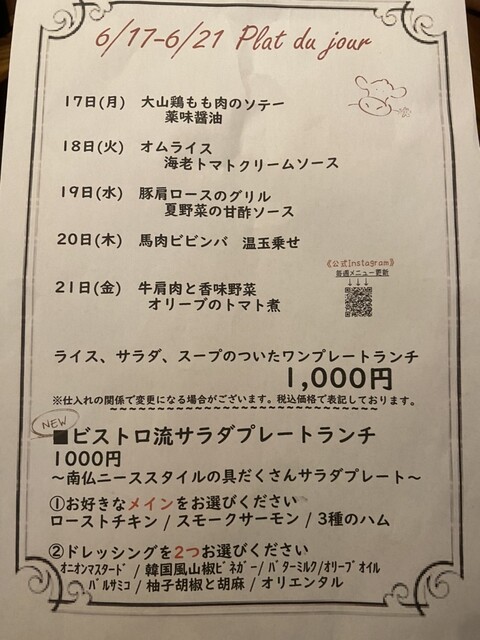 6/17-6/21 Plat du jour
17日(月) 大山鶏もも肉のソテー
薬味醤油
18日(火) オムライス
海老トマトクリームソース
19日(水) 豚肩ロースのグリル
夏野菜の甘酢ソース
20日(木) 馬肉ビビンバ 温玉乗せ
《公式Instagram》
毎週メニュー更新
↓↓↓
21日(金) 牛肩肉と香味野菜
オリーブのトマト煮
ライス、サラダ、スープのついたワンプレートランチ
1,000円
※仕入れの関係で変更になる場合がございます。税込価格で表記しております。
NEW
■ビストロ流サラダプレートランチ
1000円
～南仏ニーススタイルの具だくさんサラダプレート～
①お好きなメインをお選びください
ローストチキン / スモークサーモン / 3種のハム
②ドレッシングを2つお選びください
ｵﾆｵﾝﾏｽﾀｰﾄﾞ / 韓国風山椒ﾋﾞﾈｶﾞｰ/ ﾊﾞﾀｰﾐﾙｸ /ｵﾘｰﾌﾞｵｲﾙ
ﾊﾞﾙｻﾐｺ / 柚子胡椒と胡麻 / オリエンタル